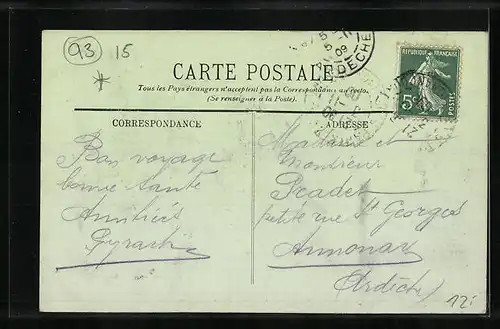 93 15
5 -11
5
09
ARDECHE
REPUBLIQUE FRANCAISE
5c
POSTES
CARTE POSTALE
Tous les Pays étrangers n'acceptent pas la Correspondance au recto.
(Se renseigner à la Poste).
CORRESPONDANCE
ADRESSE
Bon voyage
bonne Santé
Amitiés
Madame et
Monsieur
Pradet
petite rue St Georges
Annonay
(Ardèche)
12.